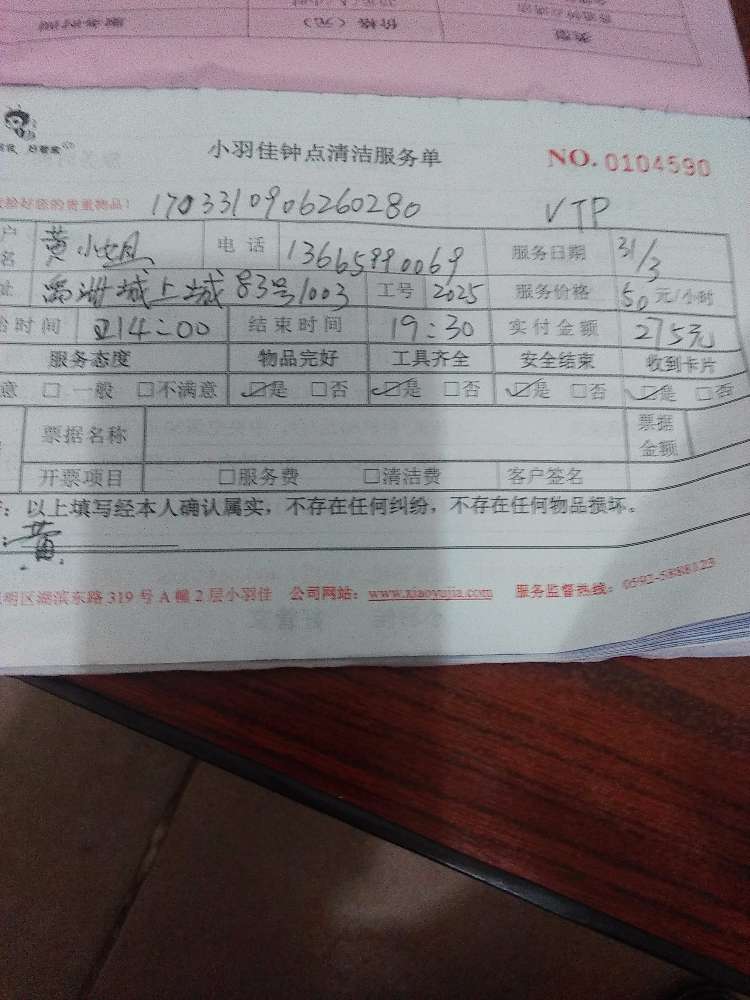 类型 价格（元） 服务时间
好管家
小羽佳钟点清洁服务单 NO. 0104590
好您的贵重物品） 1703310906260280 VIP
户名 黄小 电话 13665990069 服务日期 31/3
禹洲城上城83号1003 工号 2025 服务价格 50元/小时
时间 14:00 结束时间 19:30 实付金额 275元
服务态度 物品完好 工具齐全 安全结束 收到卡片
意 □ 一般 □不满意 ☑是 □否 ☑是 □否 ☑是 □否 ☑是 □否
票据名称 票据金额
开票项目 □服务费 □清洁费 客户签名
：以上填写经本人确认属实，不存在任何纠纷，不存在任何物品损坏。
：黄
明区湖滨东路319号A幢2层小羽佳 公司网站：www.xiaoyujia.com 服务监督热线：0592-5888123